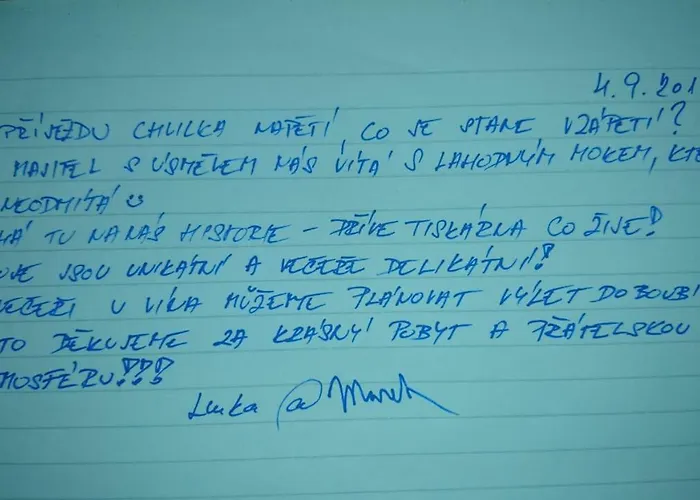 4.9.201
PŘÍJEZDU CHVILKA NAPĚTÍ CO SE STANE VZÁPĚTÍ?
MAJITEL S ÚSMĚVEM NÁS VÍTÁ S LAHODNÝM MOKEM, KTE
NEODMÍTÁ ☺
TU NA NÁS HISTORIE – DŘÍVE TISKÁRNA CO ŽIJE!
JSOU UNIKÁTNÍ A VEČEŘE DELIKÁTNÍ!
VEČEŘI U VÍNA MŮŽEME PLÁNOVAT VÝLET DO BOUBÍ
TO DĚKUJEME ZA KRÁSNÝ POBYT A PŘÁTELSKOU
MOSFÉRU!!!
Lenka a Marek